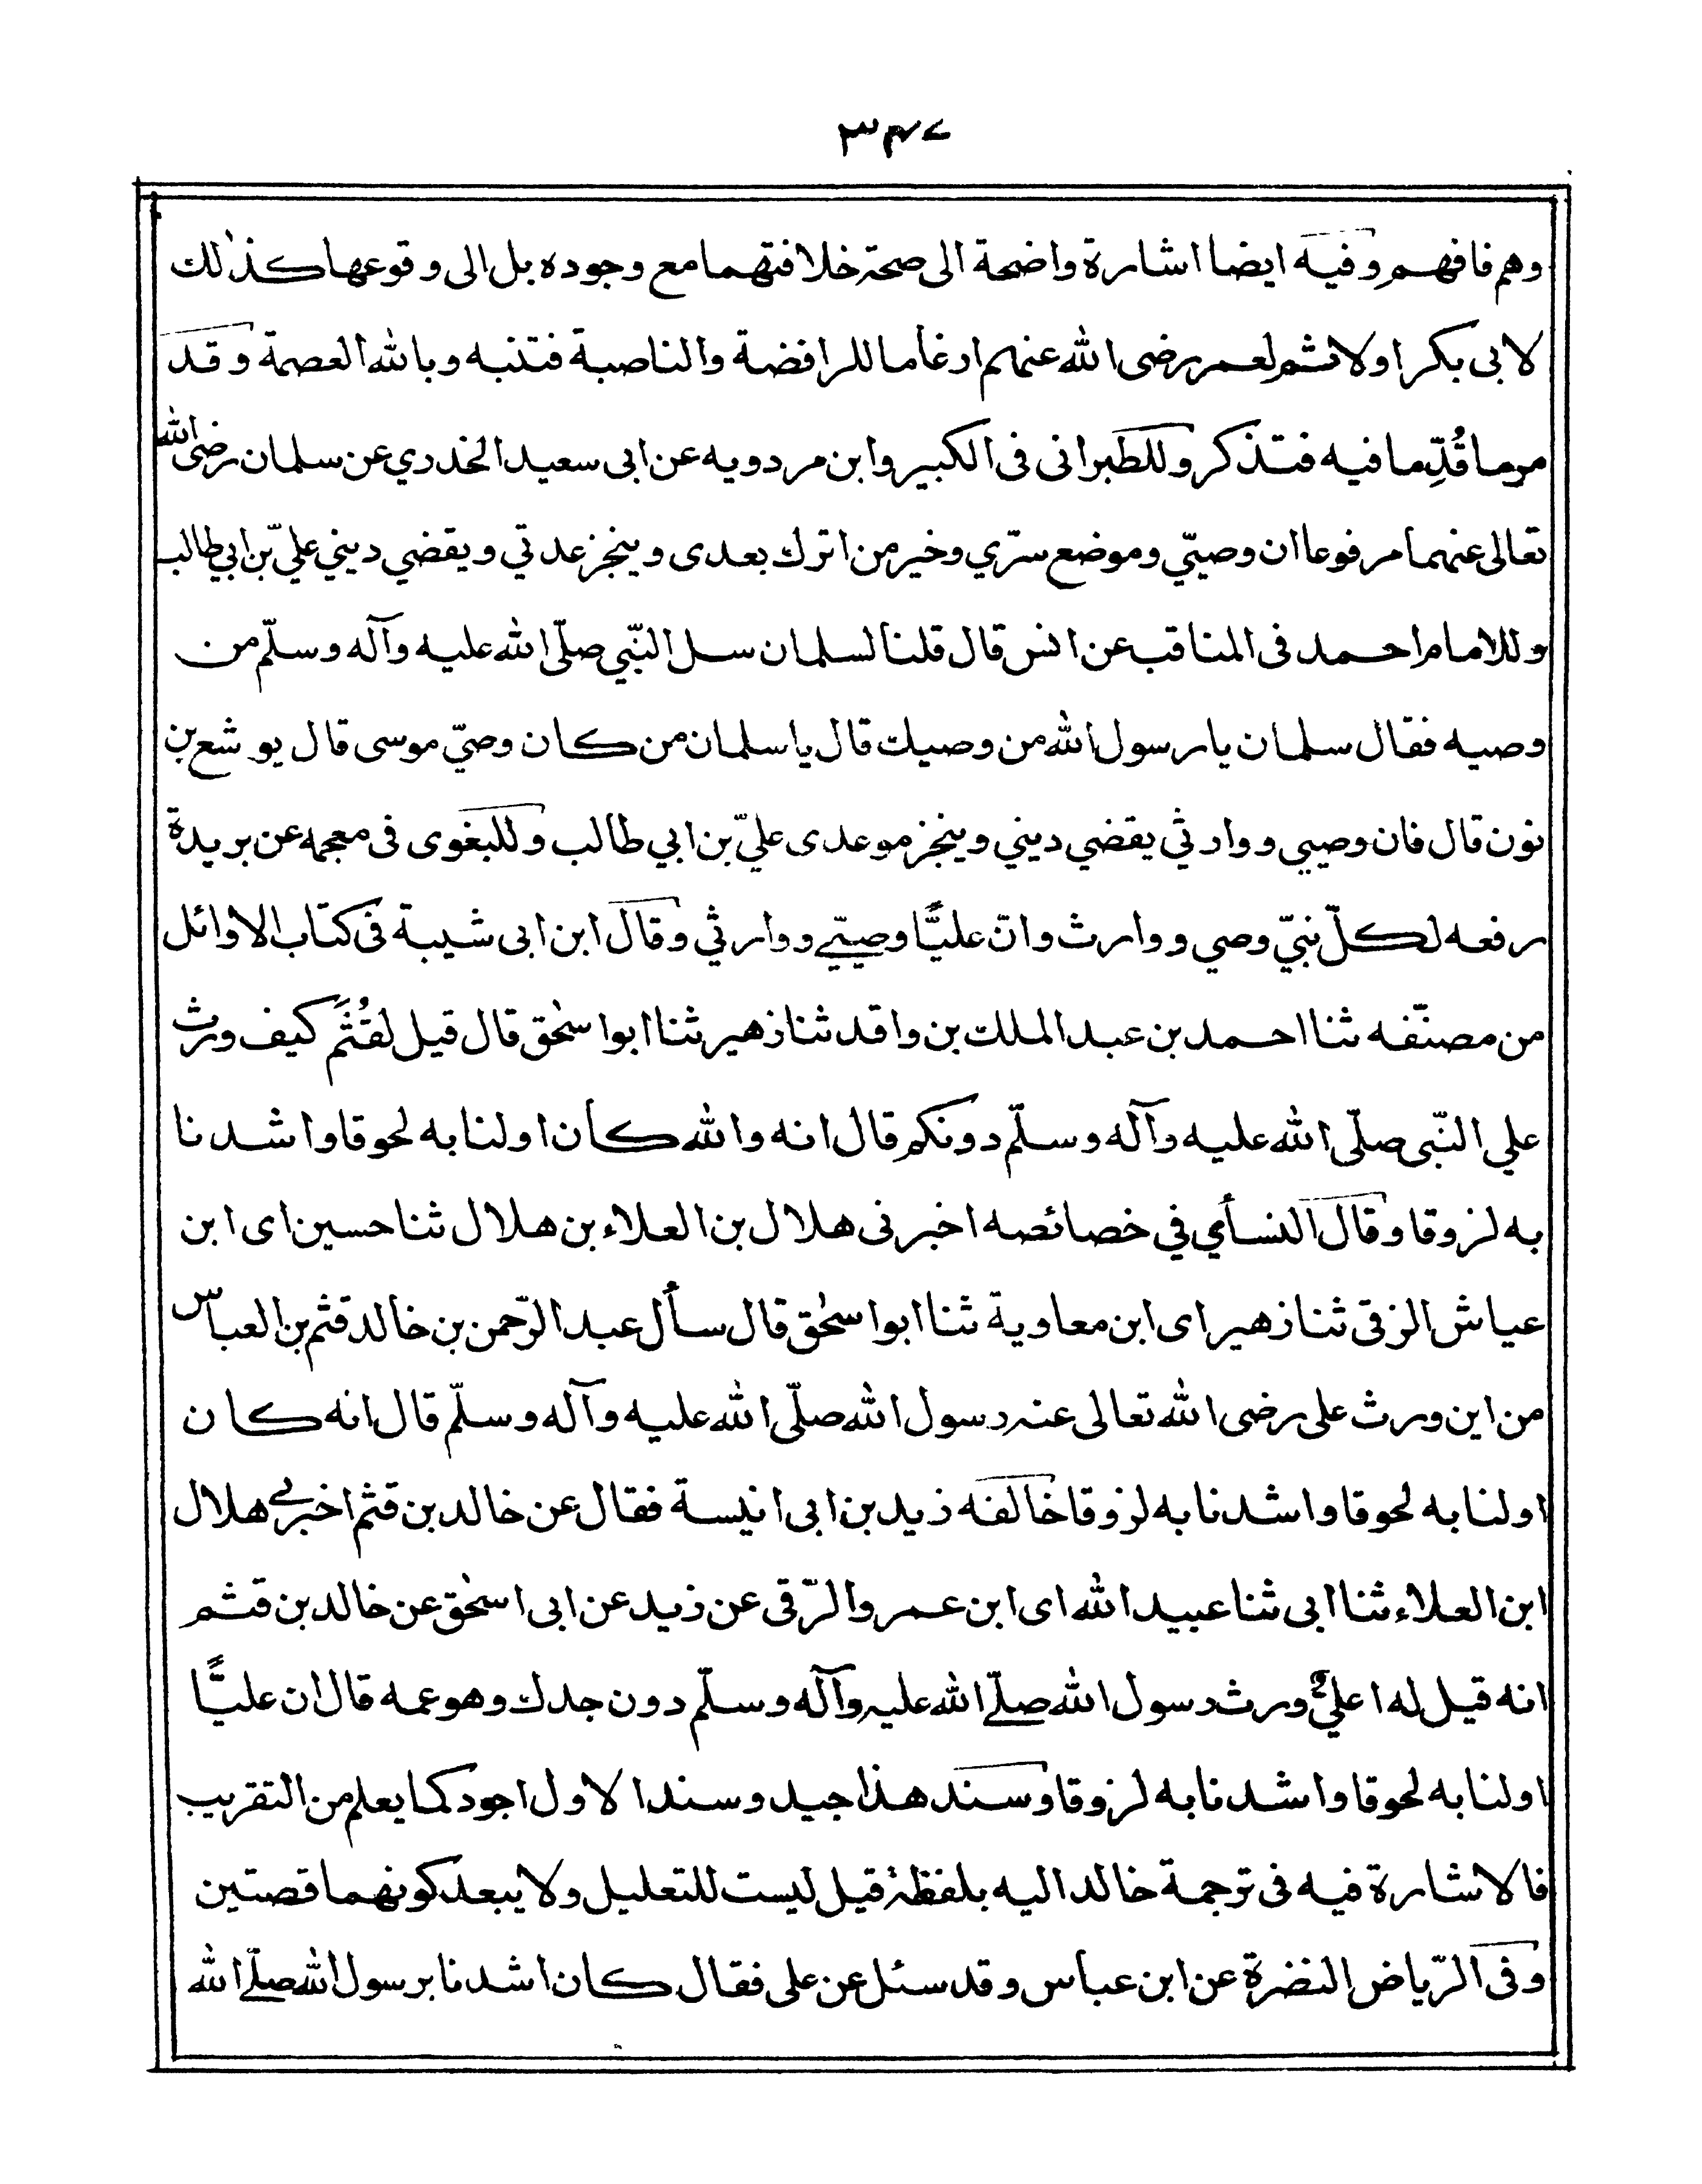 ٣٤٧
وهم فافهم وفيه ايضا اشارة واضحة الى صحة خلافتهما مع وجوده بل الى وقوعها كذلك
لابى بكر اولا ثم لعمر رضى الله عنهم ارغاما للرافضة والناصبة فتنبه وبالله العصمة وقد
مر ما قُدِّما فيه فتذكر وللطبرانى فى الكبير وابن مردويه عن ابى سعيد الخدري عن سلمان رضى الله
تعالى عنهما مرفوعا ان وصيّي وموضع سرّي وخير من اترك بعدى وينجز عدتي ويقضي ديني عليّ بن ابي طالب
وللامام احمد فى المناقب عن انس قال قلنا لسلمان سل النّبي صلّى الله عليه وآله وسلّم من
وصيه فقال سلمان يا رسول الله من وصيك قال يا سلمان من كان وصيّ موسى قال يوشع بن
نون قال فان وصيي ووارثي يقضي ديني وينجز موعدى عليّ بن ابي طالب وللبغوى فى معجمه عن بريدة
رفعه لكلّ نبيّ وصي ووارث وانّ عليًّا وصيّي ووارثي وقال ابن ابى شيبة فى كتاب الاوائل
من مصنّفه ثنا احمد بن عبد الملك بن واقد ثنا زهير ثنا ابوا سحٰق قال قيل لقُثَم كيف ورث
علي النّبى صلّى الله عليه وآله وسلّم دونكم قال انه والله كان اولنا به لحوقا واشدنا
به لزوقا وقال النسأي في خصائصه اخبرنى هلال بن العلاء بن هلال ثنا حسين اى ابن
عياش الزقى ثنا زهير اى ابن معاوية ثنا ابوا سحٰق قال سأل عبد الرّحمن بن خالد قثم بن العباس
من اين ورث على رضى الله تعالى عنه رسول الله صلّى الله عليه وآله وسلّم قال انه كان
اولنا به لحوقا واشدنا به لزوقا خالفه زيد بن ابى انيسة فقال عن خالد بن قثم اخبرني هلال
ابن العلاء ثنا ابى ثنا عبيد الله اى ابن عمرو الرّقى عن زيد عن ابى اسحٰق عن خالد بن قثم
انه قيل له اعليّ ورث رسول الله صلّے الله عليه وآله وسلّم دون جدك وهو عمه قال ان عليًّا
اولنا به لحوقا واشدنا به لزوقا وسند هذا جيد وسند الاول اجود كما يعلم من التقريب
فالاشارة فيه فى ترجمة خالد اليه بلفظة قيل ليست للتعليل ولا يبعد كونهما قصتين
وفى الرّياض النضرة عن ابن عباس وقد سئل عن على فقال كان اشدنا برسول الله صلّے الله